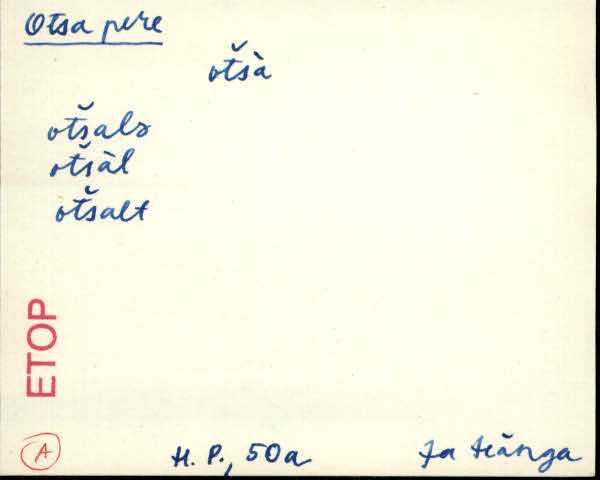 Otsa pere
otšà
otšals
otšàl
otšalt
ETOP
A
H. P., 50a